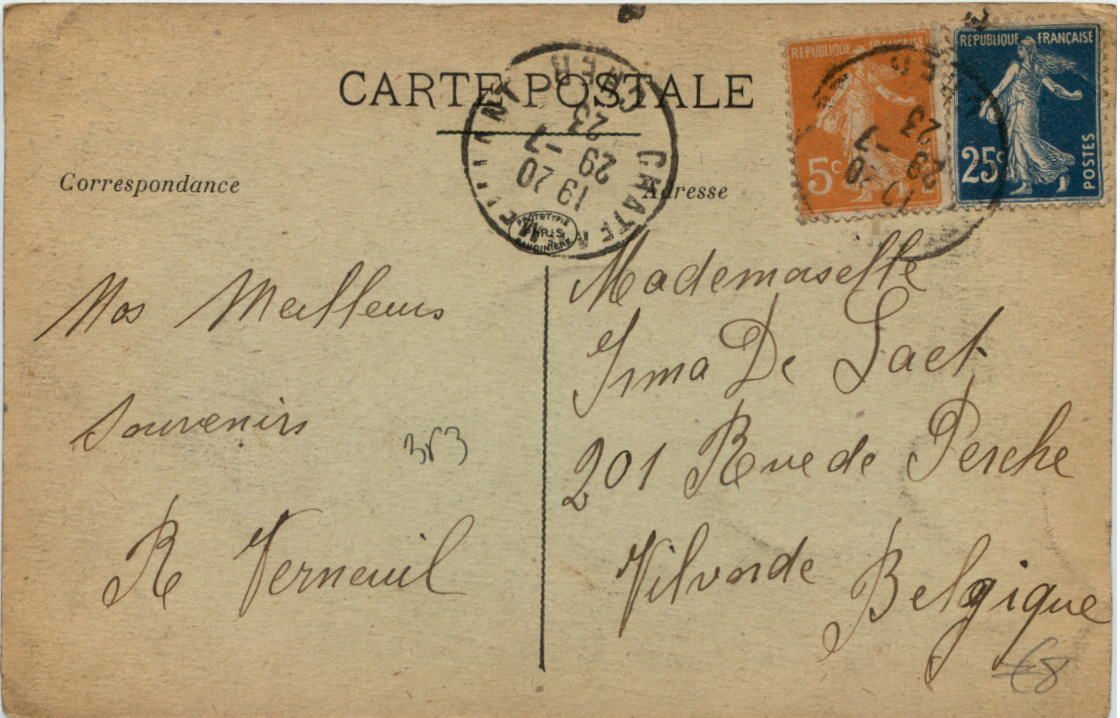 CARTE POSTALE
Correspondance
Adresse
REPUBLIQUE FRANÇAISE
5c
REPUBLIQUE FRANÇAISE
25c
POSTES
CHER
19 20
29 -7
23
PARIS
Nos Meilleurs
Souvenirs
R Verneuil
Mademaselle
Irma De Saet
201 Rue de Perche
Vilvorde
Belgique
€8